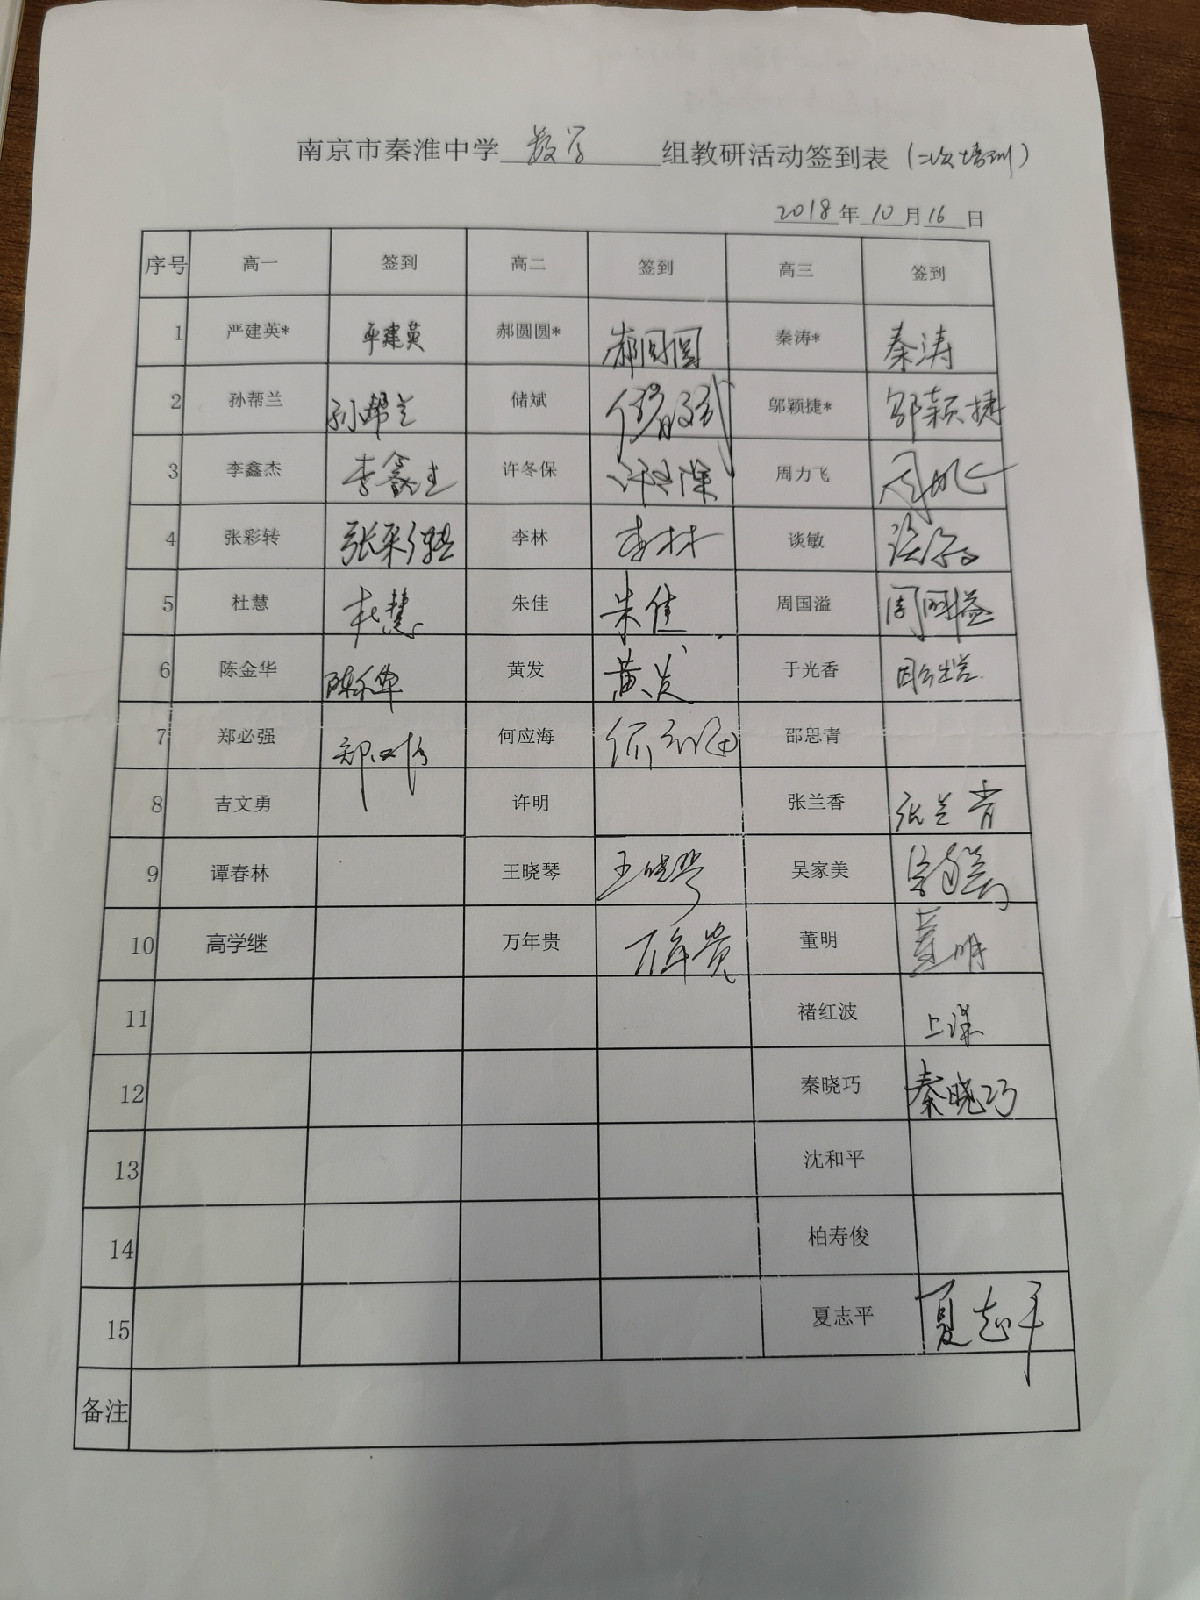 南京市秦淮中学 数学 组教研活动签到表 (二次培训)
2018 年 10 月 16 日
序号 高一 签到 高二 签到 高三 签到
1 严建英* 严建英 郝圆圆* 郝圆圆 秦涛* 秦涛
2 孙帮兰 孙帮兰 储斌 储斌 邬颖捷* 邬颖捷
3 李鑫杰 李鑫杰 许冬保 许冬保 周力飞 周力飞
4 张彩转 张彩转 李林 李林 谈敏 谈敏
5 杜慧 杜慧 朱佳 朱佳 周国溢 周国溢
6 陈金华 陈金华 黄发 黄发 于光香 因公出差
7 郑必强 郑必强 何应海 何应海 邵思青
8 吉文勇 许明 张兰香 张兰香
9 谭春林 王晓琴 王晓琴 吴家美
10 高学继 万年贵 万年贵 董明 董明
11 褚红波 上课
12 秦晓巧 秦晓巧
13 沈和平
14 柏寿俊
15 夏志平 夏志平
备注